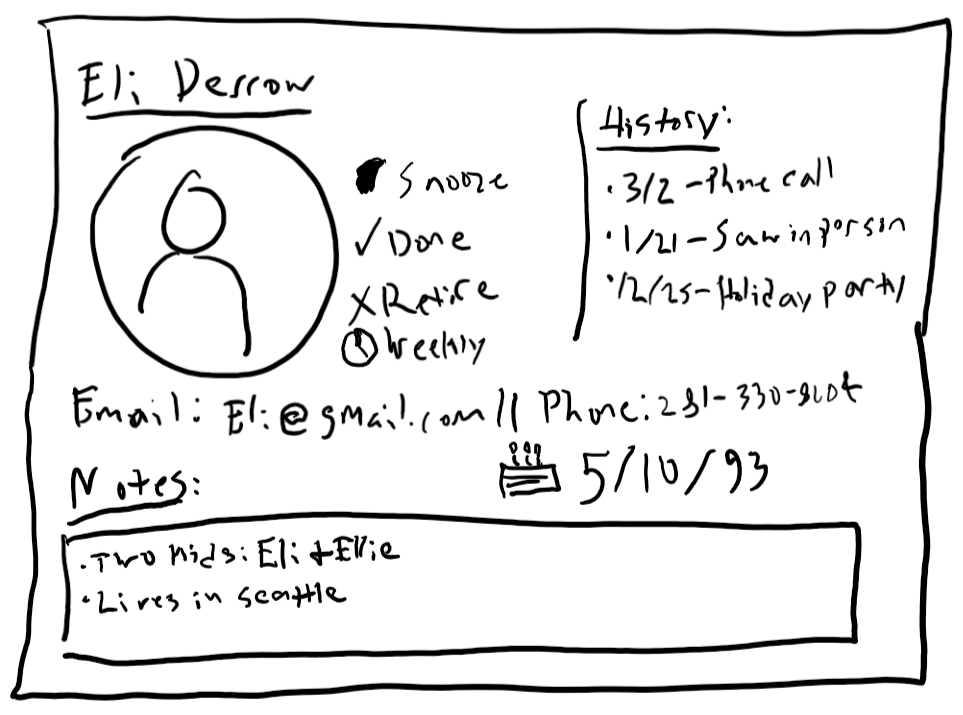 Eli Derrow
Snooze
✓ Done
X Retire
Weekly
History:
· 3/2 - Phone call
· 1/21 - Saw in person
· 12/25 - Holiday party
Email: Eli@gmail.com || Phone: 281-330-8004
5/10/93
Notes:
· Two kids: Eli + Ellie
· Lives in seattle